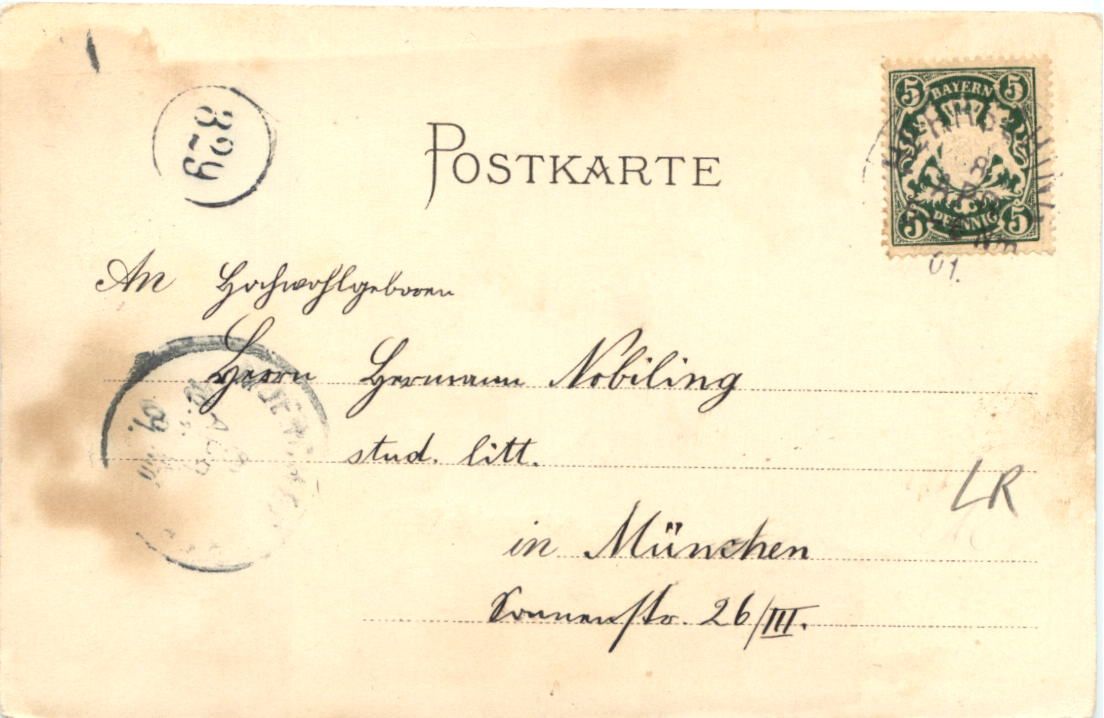 329
POSTKARTE
5 BAYERN 5
8
APR
Nm
01.
5 PFENNIG 5
An Hochwohlgeboren
Herrn Hermann Nobiling
stud. litt.
LR
in München
Sonnenstr. 26/III.